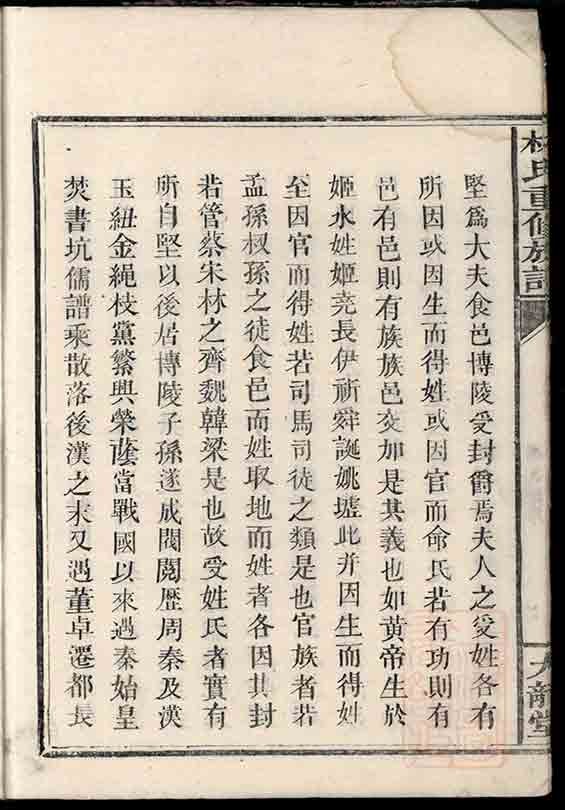 林氏重修族譜
堅爲大夫食邑博陵受封爵焉夫人之受姓各有
所因或因生而得姓或因官而命氏若有功則有
邑有邑則有族族邑交加是其義也如黃帝生於
姬水姓姬堯長伊祈舜誕姚墟此并因生而得姓
至因官而得姓若司馬司徒之類是也官族者若
孟孫叔孫之徒食邑而姓取地而姓者各因其封
若管蔡宋林之齊魏韓梁是也故受姓氏者實有
所自堅以後居博陵子孫遂成閥閱歷周秦及漢
玉紐金繩枝黨繁興榮蔭當戰國以來遇秦始皇
焚書坑儒譜乘散落後漢之末又遇董卓遷都長
九龍堂